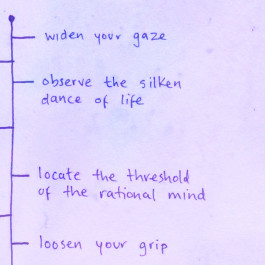 widen your gaze
observe the silken
dance of life
locate the threshold
of the rational mind
loosen your grip